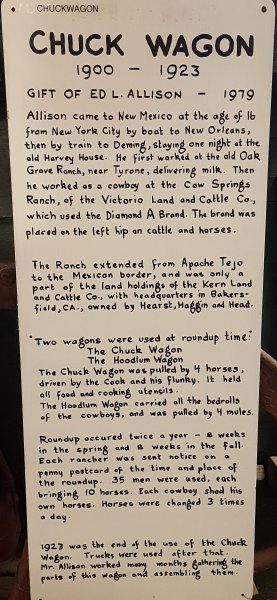 CHUCKWAGON
CHUCK WAGON
1900 - 1923
GIFT OF ED L. ALLISON - 1979
Allison came to New Mexico at the age of 16
from New York City by boat to New Orleans,
then by train to Deming, staying one night at the
old Harvey House. He first worked at the old Oak
Grove Ranch, near Tyrone, delivering milk. Then
he worked as a cowboy at the Cow Springs
Ranch, of the Victorio Land and Cattle Co.,
which used the Diamond A Brand. The brand was
placed on the left hip on cattle and horses.
The Ranch extended from Apache Tejo
to the Mexican border, and was only a
part of the land holdings of the Kern Land
and Cattle Co., with headquarters in Bakers-
field, CA., owned by Hearst, Haggin and Head.
"Two wagons were used at roundup time:"
The Chuck Wagon
The Hoodlum Wagon
The Chuck Wagon was pulled by 4 horses,
driven by the Cook and his flunky. It held
all food and cooking utensils.
The Hoodlum Wagon carried all the bedrolls
of the cowboys, and was pulled by 4 mules.
Roundup occured twice a year - 8 weeks
in the spring and 8 weeks in the fall.
Each rancher was sent notice on a
penny postcard of the time and place of
the roundup. 35 men were used, each
bringing 10 horses. Each cowboy shod his
own horses. Horses were changed 3 times
a day.
1923 was the end of the use of the Chuck
Wagon. Trucks were used after that.
Mr. Allison worked many months gathering the
parts of this wagon and assembling them.